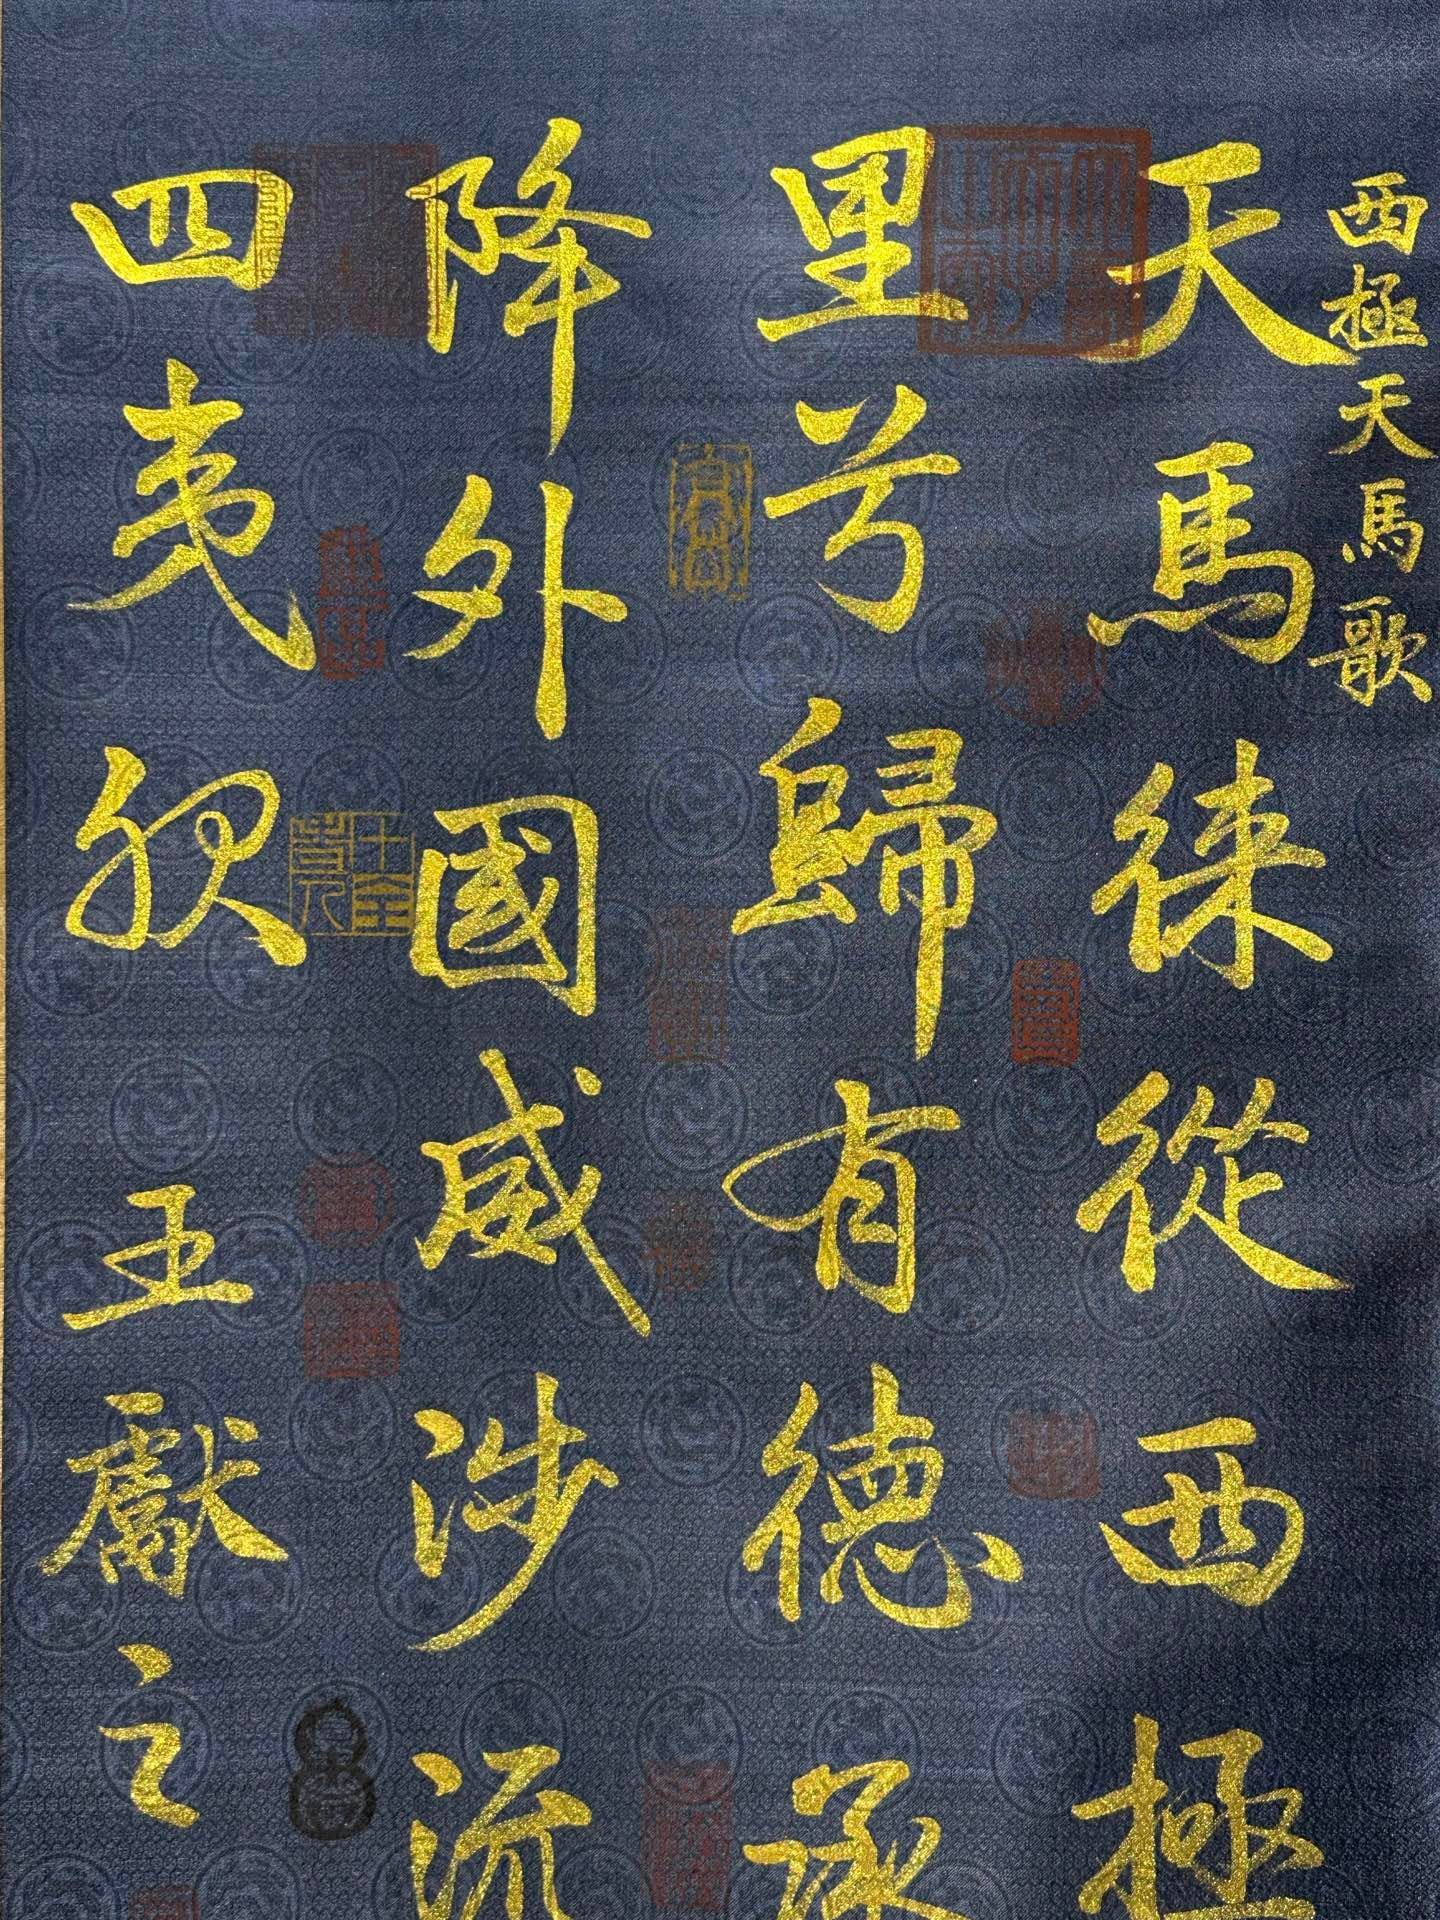 西極天馬歌
天馬徠從西極
里兮歸有德承
降外國威涉流
四夷服 王獻之